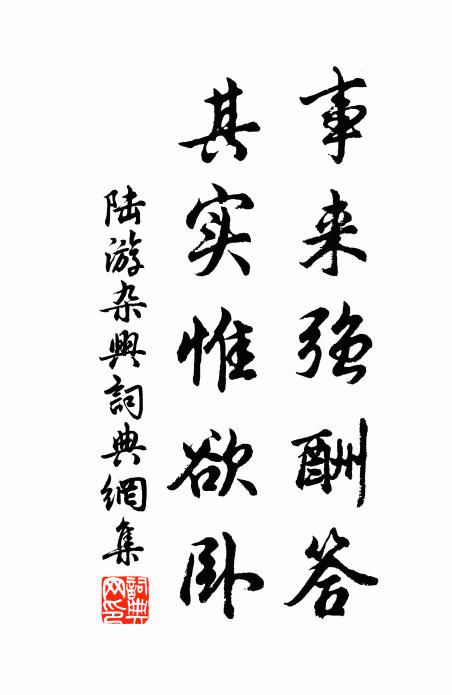 事来强酬答
其实惟欲卧
陆游杂興詞典網集
詞典
网印